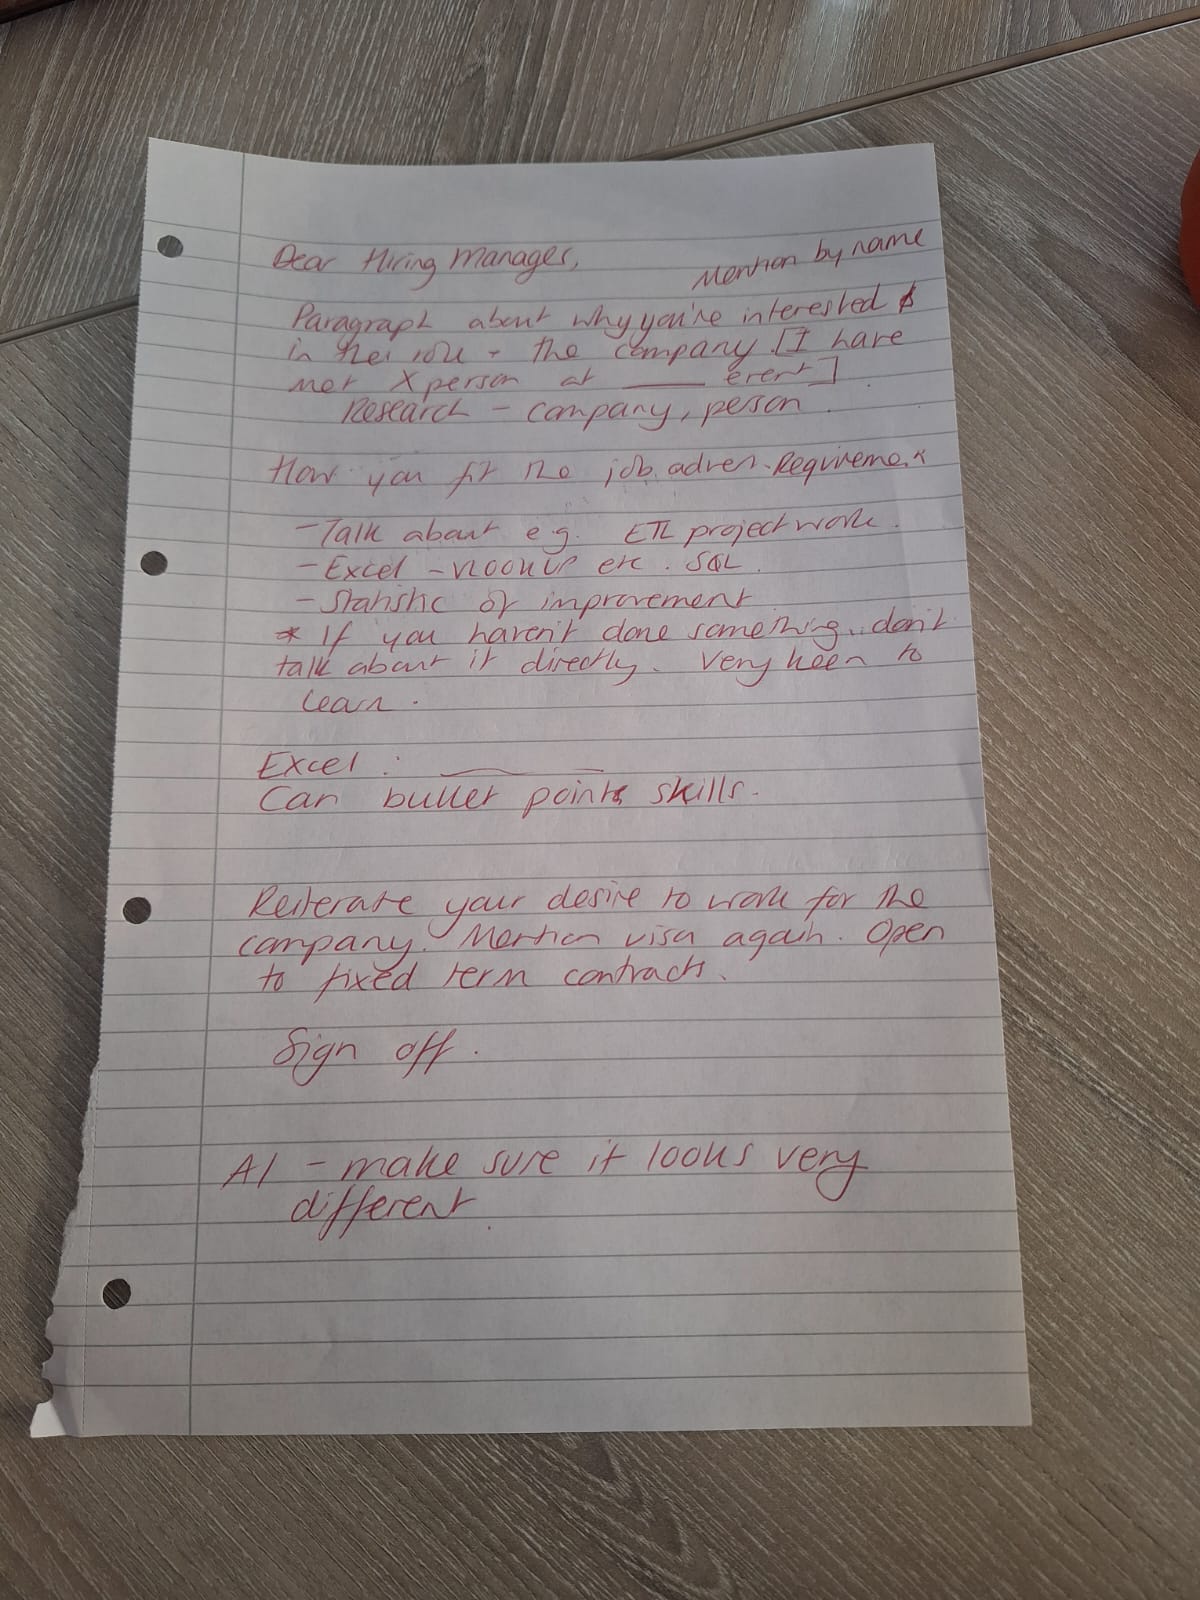 Dear Hiring Manager,
Mention by name
Paragraph about why you're interested
in the role + the company. [I have
met X person at ____ event]
Research - company, person.
How you fit the job advert. Requirement
- Talk about e.g. ETL project work.
- Excel - VLOOKUP etc. SQL.
- Statistic of improvement
* If you haven't done something, don't
talk about it directly. Very keen to
learn.
Excel :
Can bullet points skills.
Reiterate your desire to work for the
company. Mention visa again. Open
to fixed term contracts.
Sign off.
AI - make sure it looks very
different.